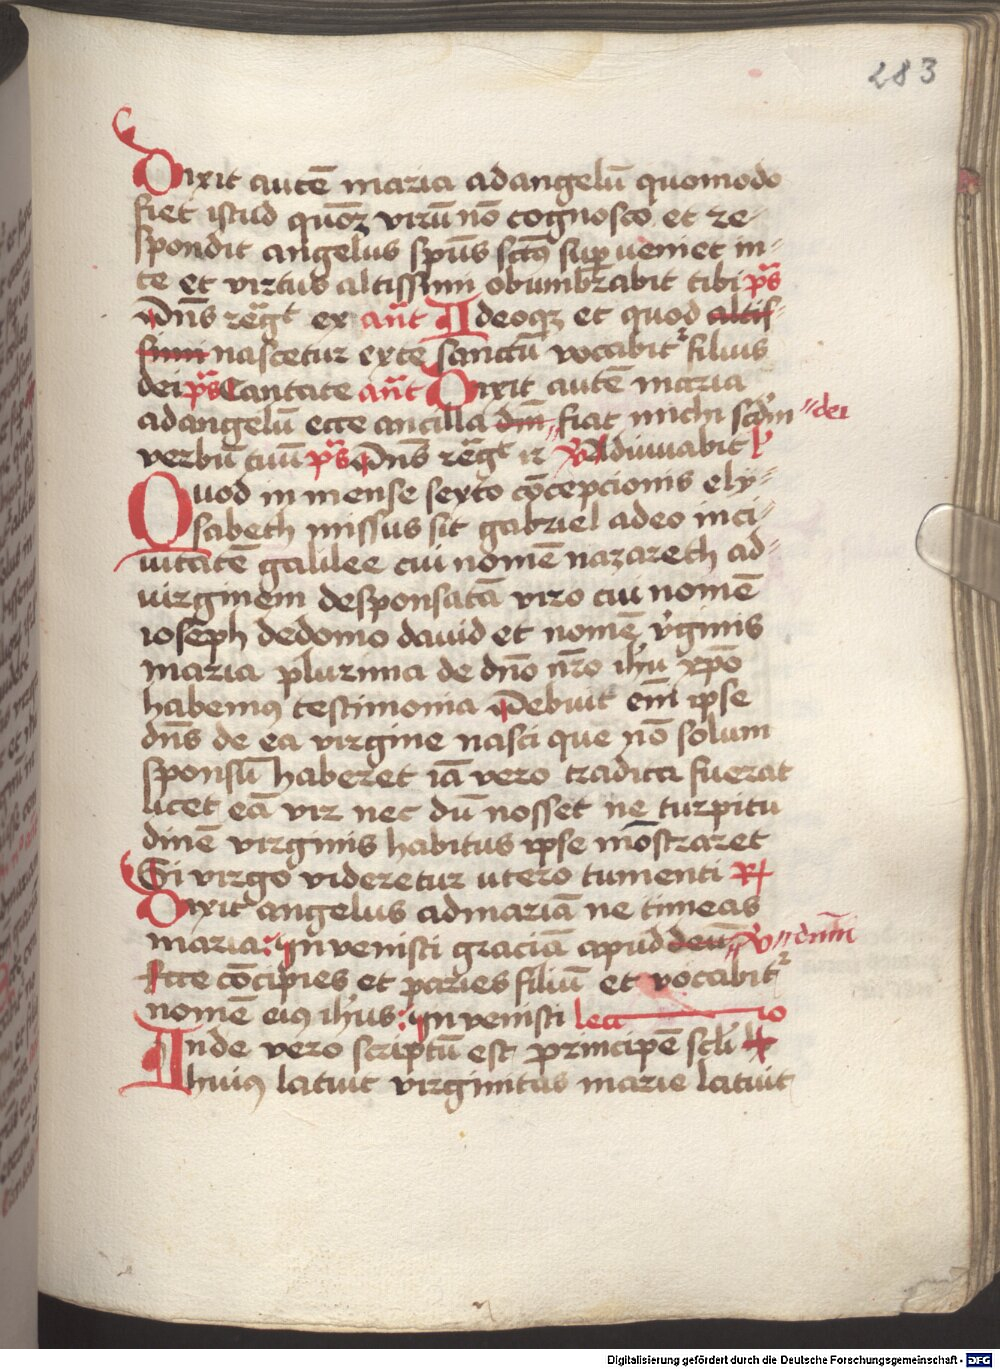 283
Dixit autē maria ad angelū quomodo
fiet istud quoꝫ virū nō cognosco et re-
spondit angelus spūs sctūs supveniet in-
te et virtus altissimi obumbrabit tibi pͣs
Dn̄s reg̃t ex an̄t Ideoqꝫ et quod altis-
simi nascetur ex te sanctū vocabit᷑ filius
dei pͣs Cantate an̄t Dixit autē maria
ad angelū ecce ancilla dn̄i fiat michi scdm̄ dei
verbū tuū pͣs Dn̄s reg̃t ꝟ Adiuuabit
Quod in mense sexto cōcepcionis ely-
sabeth missus sit gabriel a deo in ci-
uitatē galilee cui nomē nazareth ad-
uirginem desponsatā viro cui nomē
ioseph de domo dauid et nomē v̓ginis
maria plurima de dn̄o nr̄o ihū xp̄o
habemꝰ testimonia Debuit em̄ ipse
dn̄s de ea virgine nasci que nō solum
sponsū haberet iā vero tradita fuerat
licet eā vir nec dū nosset ne turpitu
dinē virginis habitus ipse mōstraret
Si virgo videretur utero tumenti ℟
Dixit angelus ad mariā ne timeas
maria Invenisti graciā apud deū ꝟ dn̄m
Ecce cōcipies et paries filiū et vocabit᷑
nomē eiꝰ ihūs Invenisti lec io
Inde vero scriptū est principē scl̄i
huiꝰ latuit virginitas marie latuit
Digitalisierung gefördert durch die Deutsche Forschungsgemeinschaft - DFG